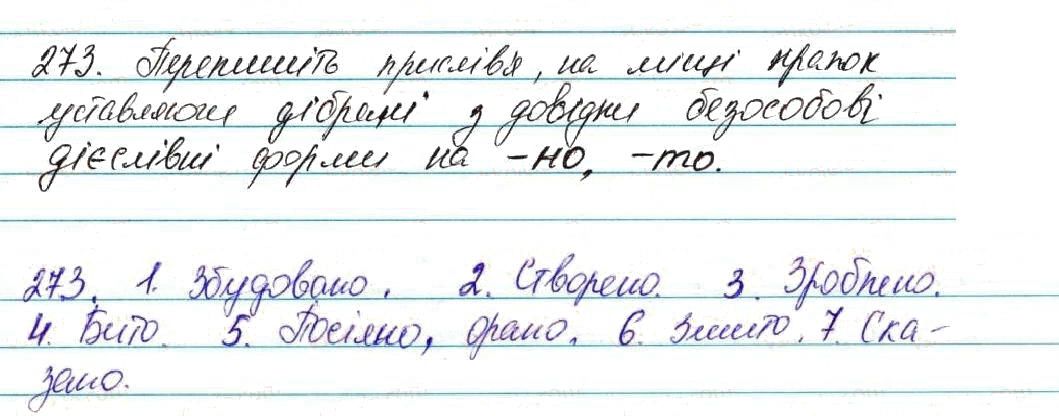 273. Перепишіть прислівя, на місці крапок
уставляючи дібрані з довідки безособові
дієслівні форми на -но, -то.
273. 1. Збудовано. 2. Створено. 3. Зроблено.
4. Бито. 5. Посіяно, орано. 6. Зшито. 7. Ска-
зано.